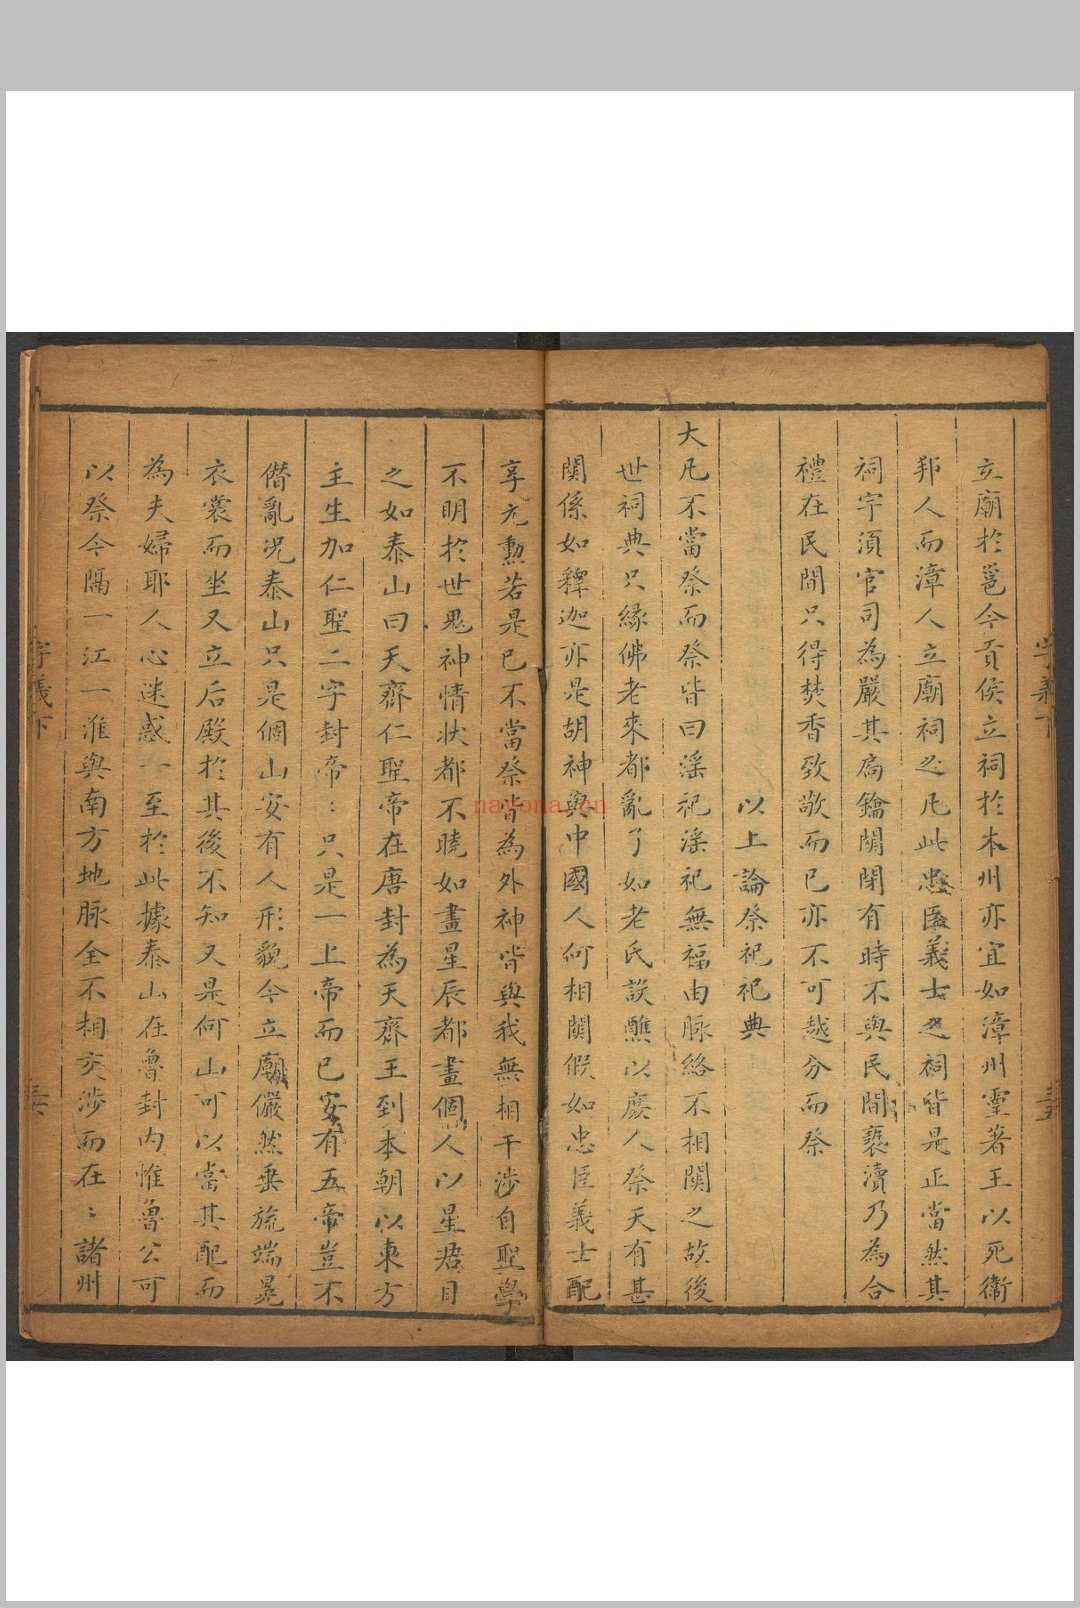 立廟於邕今貢侯立祠於本州亦宜如漳州靈著王以死衛
邦人而漳人立廟祠之凡此忠臣義士之祠皆是正當然其
祠宇須官司為嚴其扃鑰開閉有時不與民間褻瀆乃為合
禮在民間只得焚香致敬而已亦不可越分而祭
以上論祭祀祀典
大凡不當祭而祭皆曰淫祀淫祀無福由脉絡不相關之故後
世祠典只緣佛老來都亂了如老氏設醮以庶人祭天有甚
關係如釋迦亦是胡神與中國人何相關假如忠臣義士配
享元勲若是已不當祭皆為外神皆與我無相干涉自聖學
不明於世鬼神情狀都不曉如畫星辰都畫個人以星君目
之如泰山曰天齊仁聖帝在唐封為天齊王到本朝以東方
主生加仁聖二字封帝〻只是一上帝而已安有五帝豈不
僭亂况泰山只是個山安有人形貌今立廟儼然垂旒端冕
衣裳而坐又立后殿於其後不知又是何山可以當其配而
為夫婦耶人心迷惑一至於此據泰山在魯封内惟魯公可
以祭今隔一江一淮與南方地脉全不相交涉而在〻諸州
字義下
字義下
nayona.cn